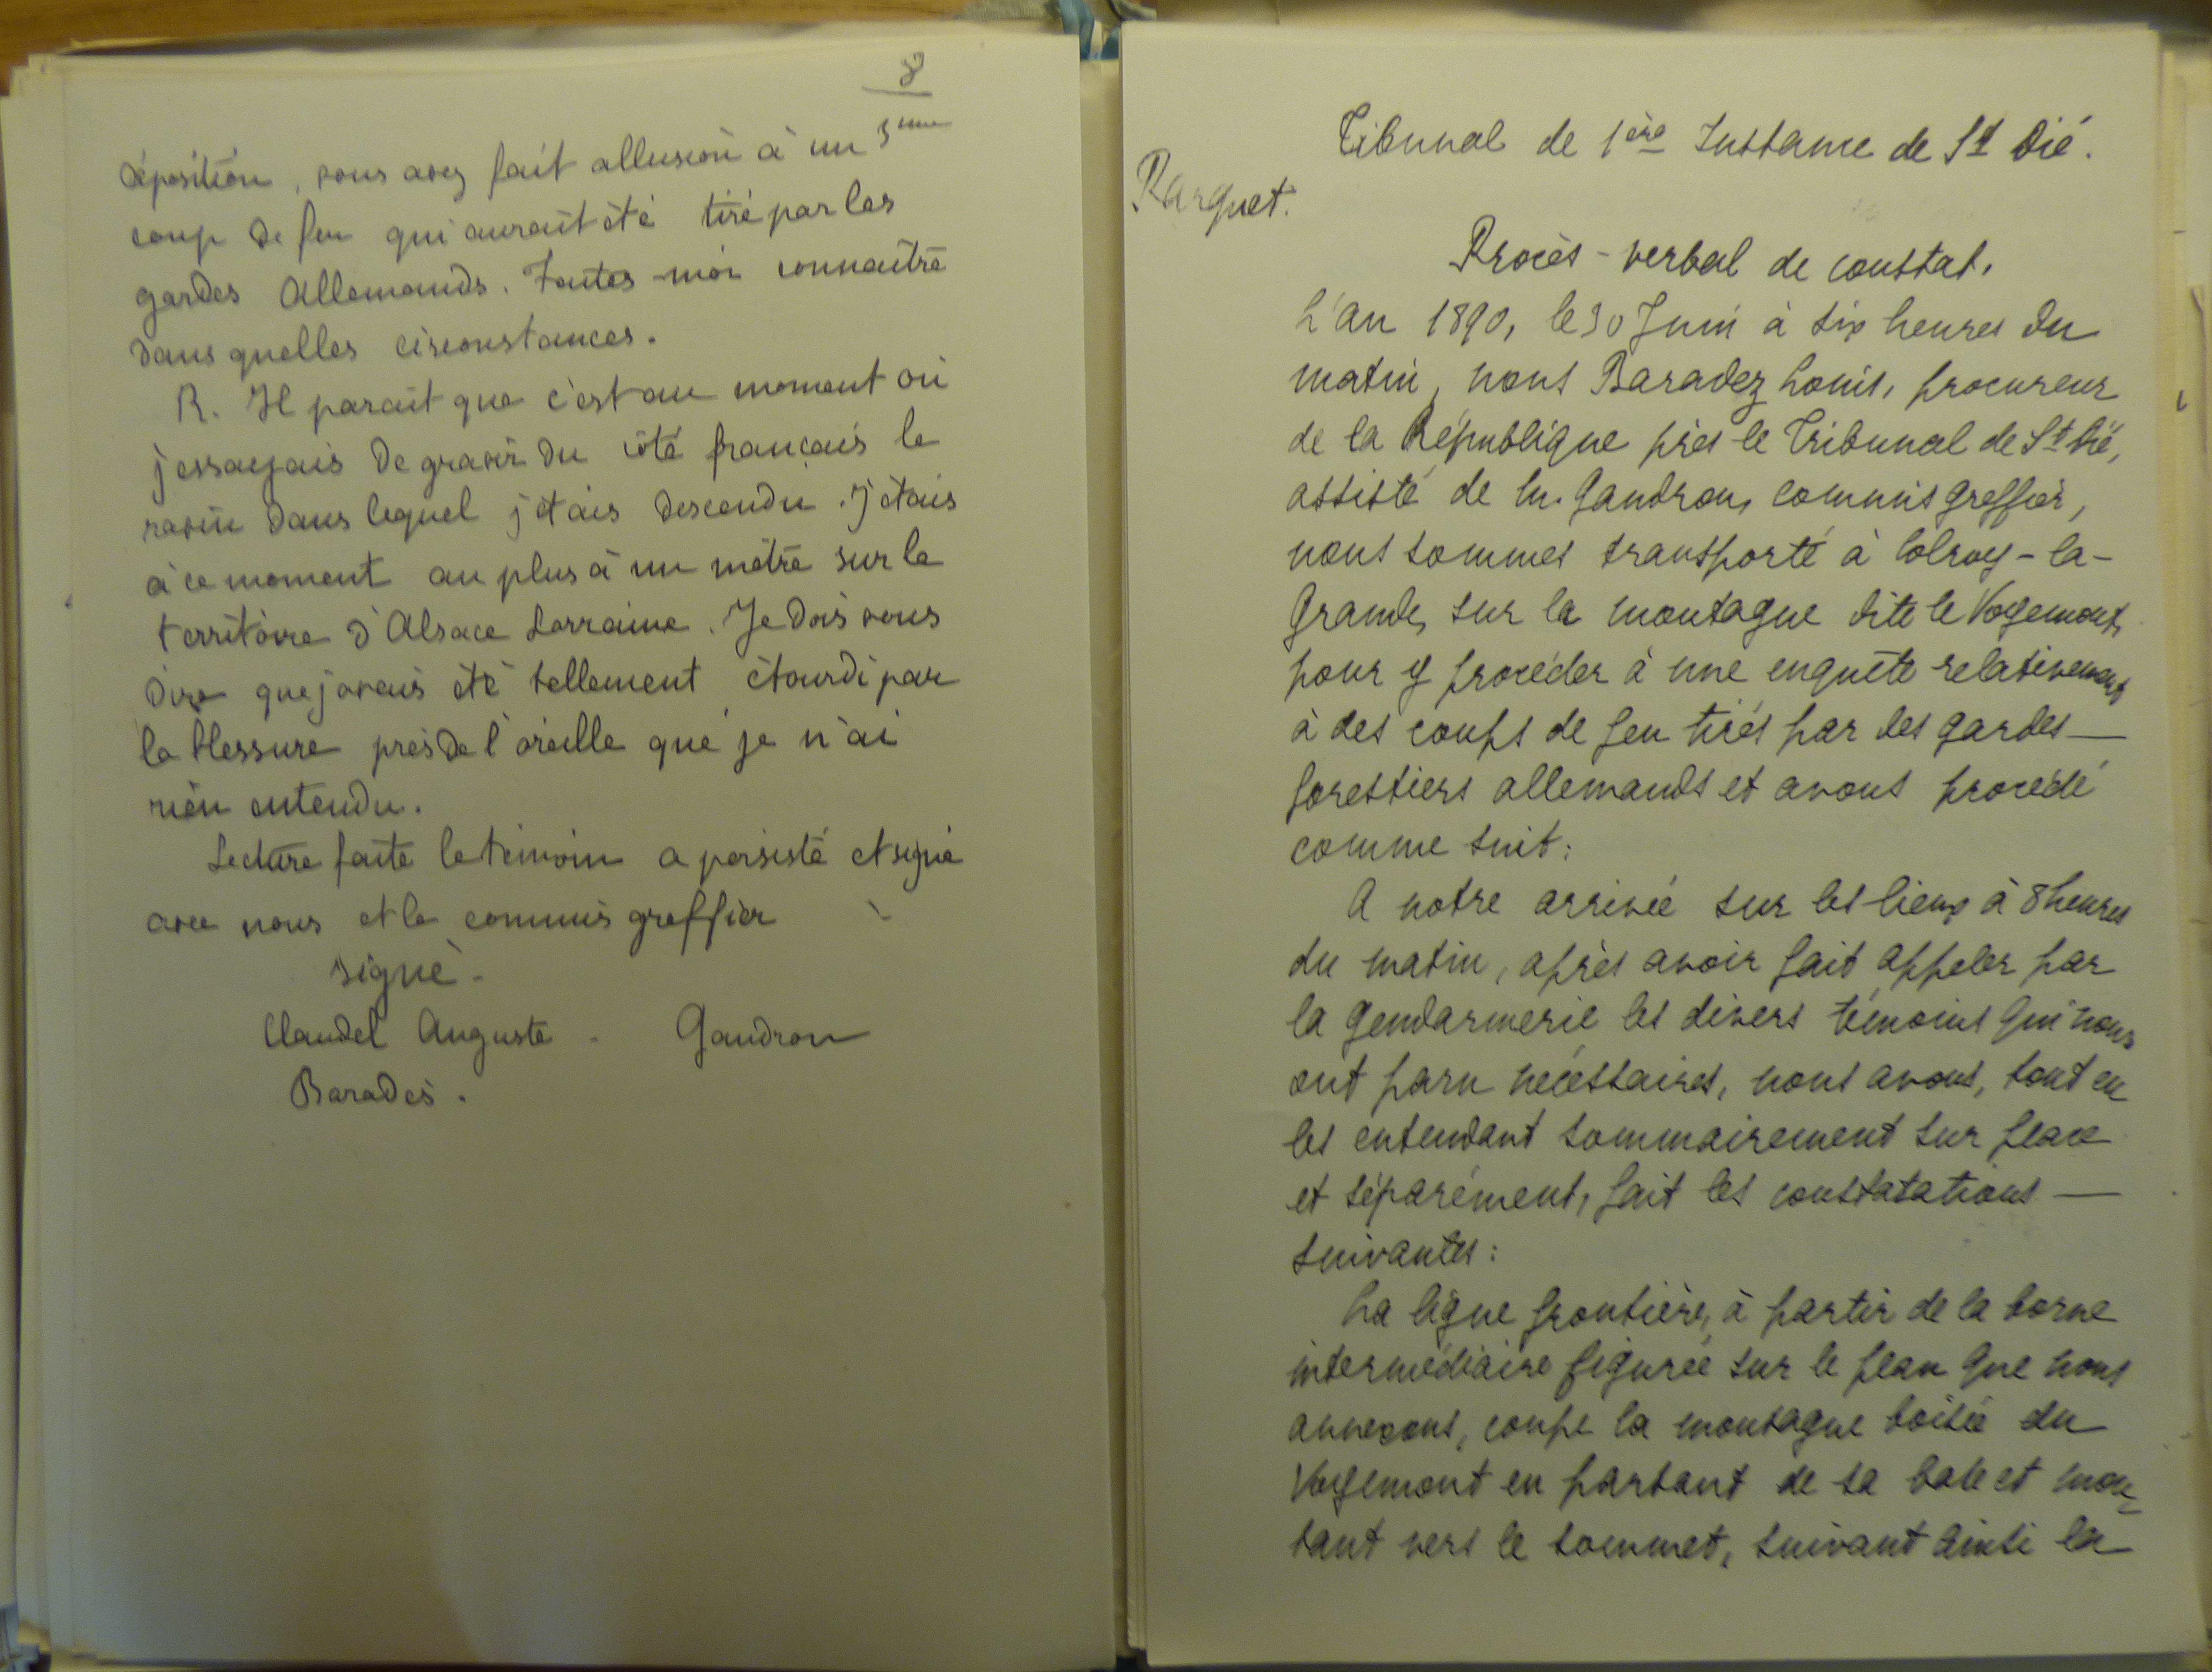 8
déposition, vous avez fait allusion à un 3ème
coup de feu qui aurait été tiré par les
gardes Allemands. Faites-moi connaître
dans quelles circonstances.
R. Il parait que c'est au moment où
j'essayais de gravir du côté français le
ravin dans lequel j'étais descendu. J'étais
à ce moment au plus à un mètre sur le
territoire d'Alsace Lorraine. Je dois vous
dire que j'avais été tellement étourdi par
la blessure près de l'oreille que je n'ai
rien entendu.
Lecture faite le témoin a persisté et signé
avec nous et le commis greffier
signé -
Claudel Auguste - Gaudron
Baradès.
Tribunal de 1ère Instance de St Dié.
Parquet.
Procès-verbal de constat.
L'an 1890, le 30 Juin à six heures du
matin, nous Baradez Louis, procureur
de la République près le Tribunal de St Dié,
assisté de M. Gaudron, commis greffier,
nous sommes transporté à Colroy-la-
Grande, sur la montagne dite le Vogemont,
pour y procéder à une enquête relativement
à des coups de feu tirés par des gardes —
forestiers allemands et avons procédé
comme suit:
A notre arrivée sur les lieux à 8 heures
du matin, après avoir fait appeler par
la gendarmerie les divers témoins qui nous
ont paru nécessaires, nous avons, tout en
les entendant sommairement sur place
et séparément, fait les constatations —
suivantes:
La ligne frontière, à partir de la borne
intermédiaire figurée sur le plan que nous
annexons, coupe la montagne boisée du
Vogemont en partant de sa base et mon=
tant vers le sommet, suivant ainsi la